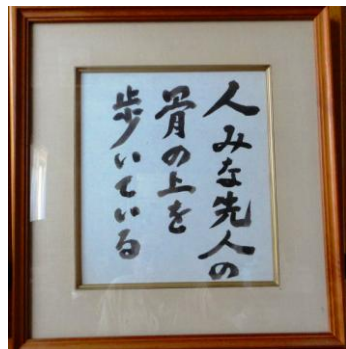 人みな先人の
骨の上を
歩いている